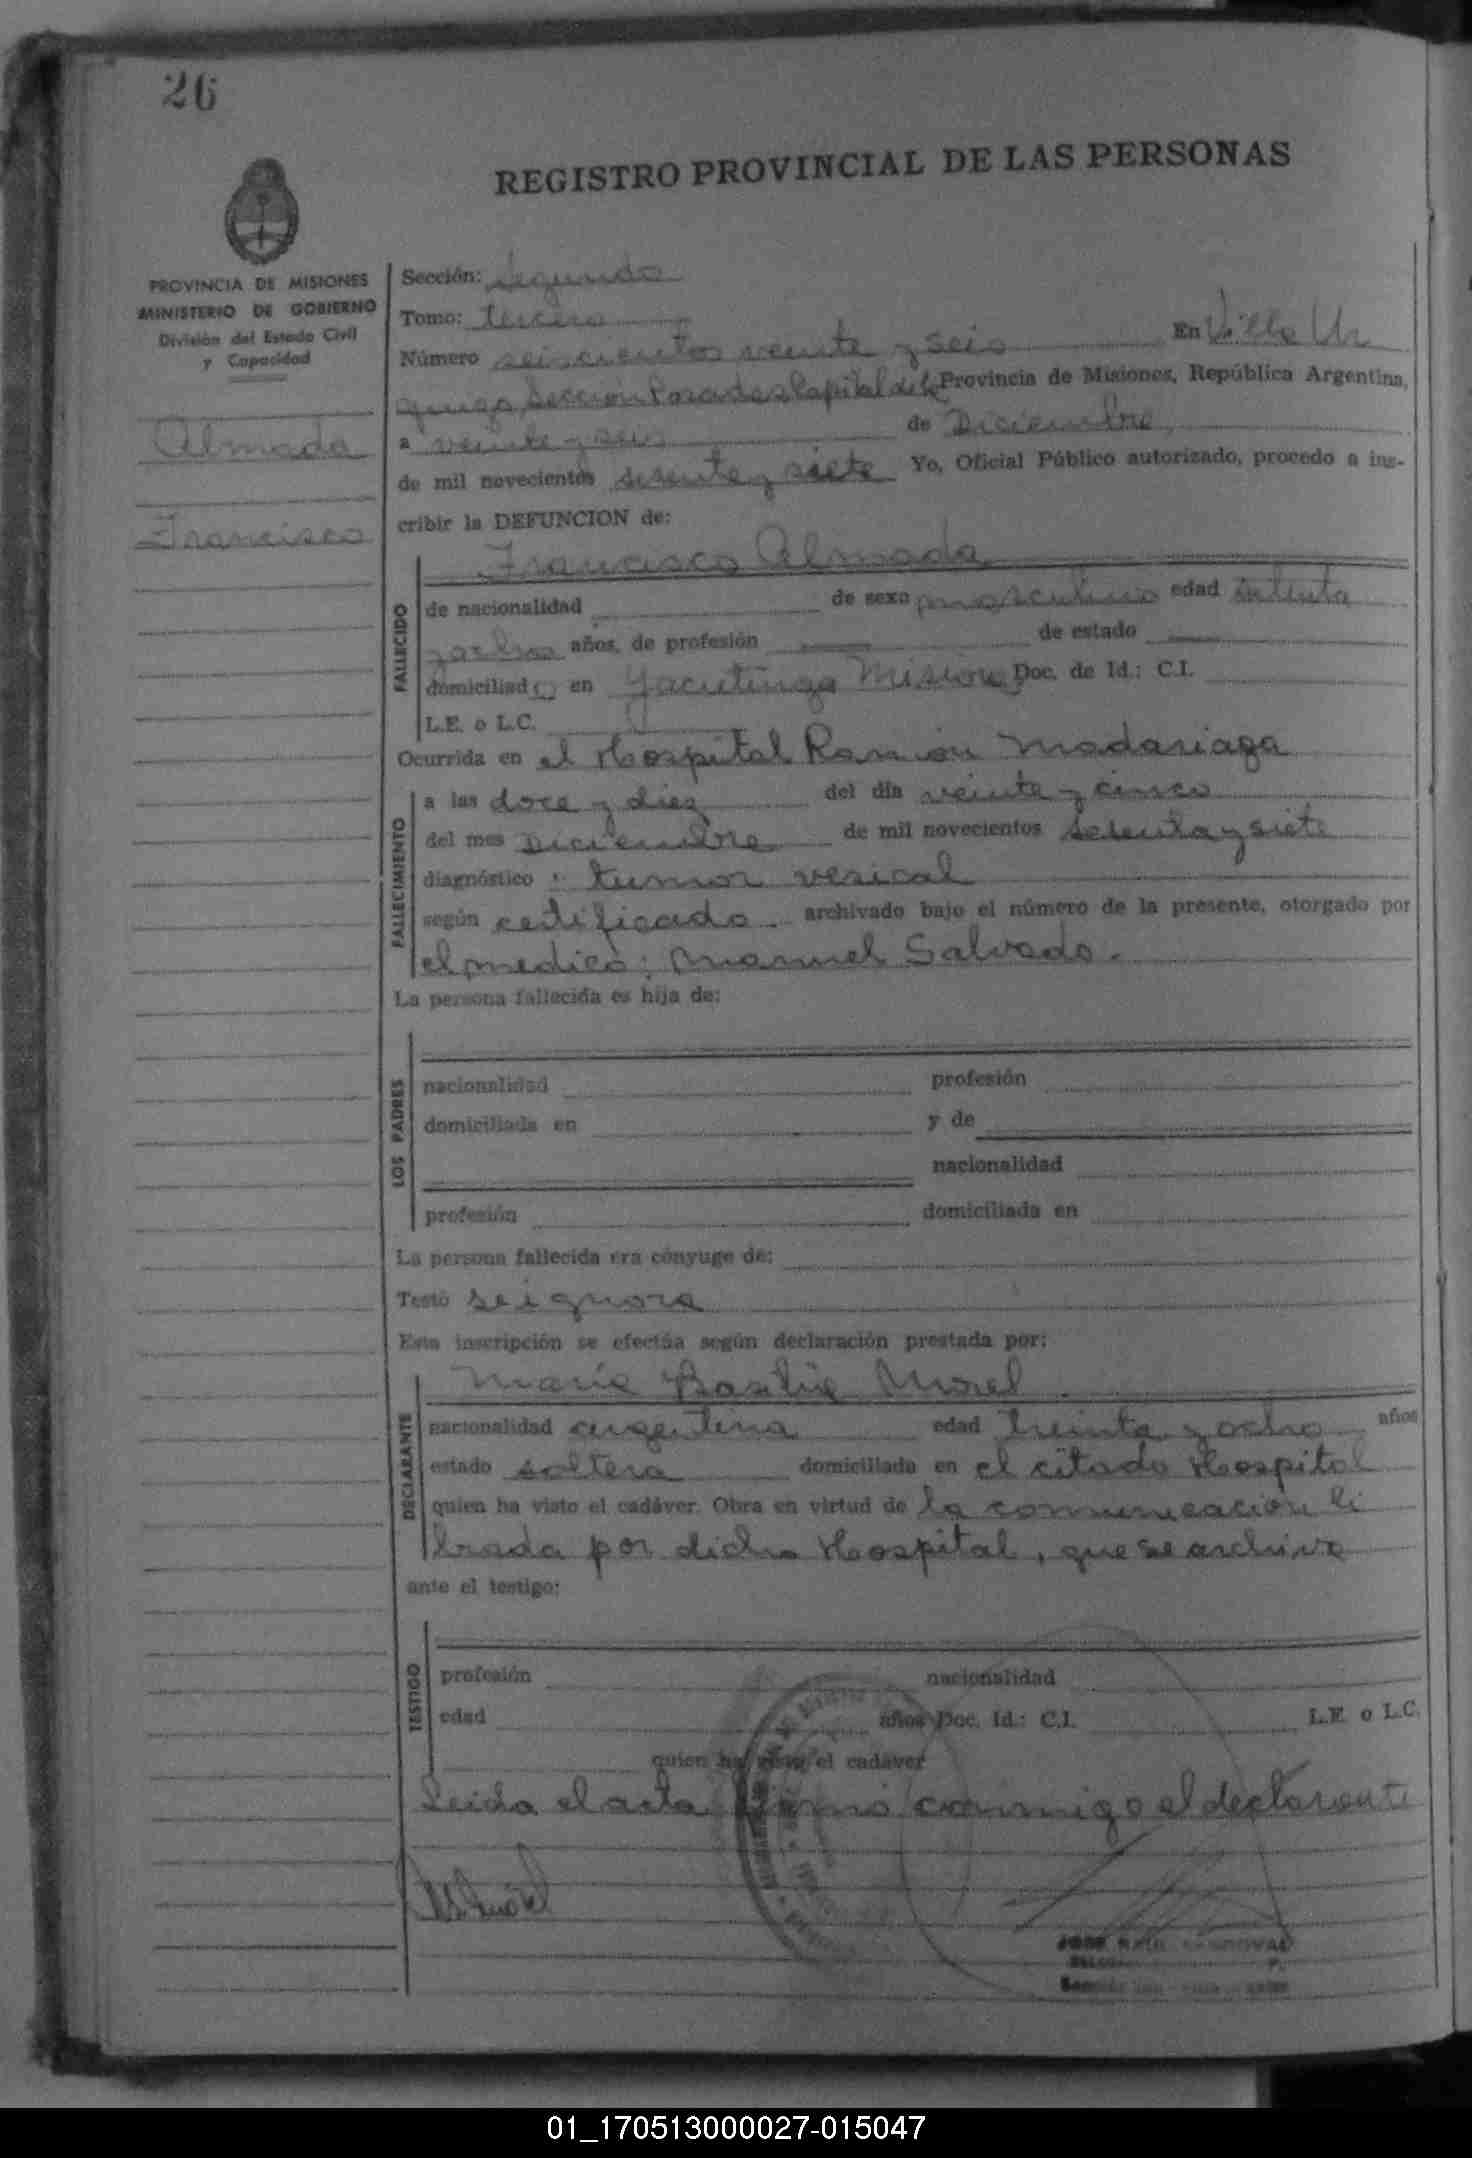 26
REGISTRO PROVINCIAL DE LAS PERSONAS
PROVINCIA DE MISIONES
MINISTERIO DE GOBIERNO
División del Estado Civil
y Capacidad
Almada
Francisco
Sección: Segunda
Tomo: tercero
Número seiscientos veinte y seis En Villa Ur
quiza, Sección Posadas Capital de la Provincia de Misiones, República Argentina,
a veinte y seis de Diciembre
de mil novecientos setenta y siete Yo, Oficial Público autorizado, procedo a ins-
cribir la DEFUNCION de:
Francisco Almada
FALLECIDO
de nacionalidad de sexo masculino edad setenta
y ocho años, de profesión de estado
domiciliado en Yacutinga Misiones Doc. de Id.: C.I.
L.E. o L.C.
Ocurrida en el Hospital Ramón Madariaga
FALLECIMIENTO
a las doce y diez del día veinte y cinco
del mes Diciembre de mil novecientos setenta y siete
diagnóstico tumor vesical
según certificado archivado bajo el número de la presente, otorgado por
el medico: Manuel Salvado.
La persona fallecida es hija de:
LOS PADRES
nacionalidad profesión
domiciliada en y de
nacionalidad
profesión domiciliada en
La persona fallecida era cónyuge de:
Testó se ignora
Esta inscripción se efectúa según declaración prestada por:
DECLARANTE
María Basilia Morel
nacionalidad argentina edad treinta y ocho años
estado soltera domiciliada en el citado Hospital
quien ha visto el cadáver. Obra en virtud de la comunicación li
brada por dicho Hospital, que se archiva
ante el testigo:
TESTIGO
profesión nacionalidad
edad años Doc. Id.: C.I. L.E. o L.C.
quien ha visto el cadáver
Leida el acta firmó conmigo el declarante
JOSE SANDOVAL
01_170513000027-015047